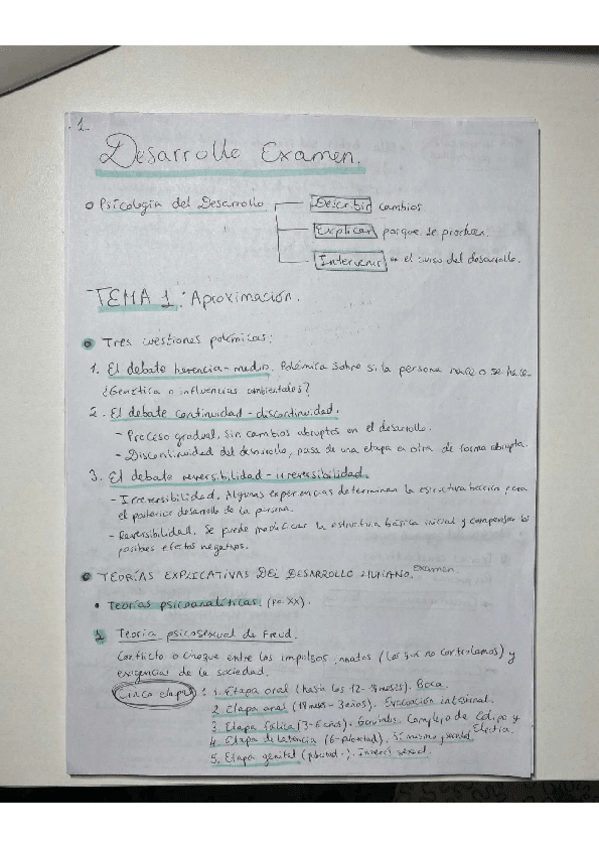 1
Desarrollo Examen.
Psicología del Desarrollo
Describir cambios
Explicar porque se producen.
Intervenir en el curso del desarrollo.
TEMA 1: Aproximación.
Tres cuestiones polémicas:
1. El debate herencia-medio. Polémica sobre si la persona nace o se hace.
¿Genética o influencias ambientales?
2. El debate continuidad - discontinuidad.
- Proceso gradual, sin cambios abruptos en el desarrollo.
- Discontinuidad del desarrollo, pasa de una etapa a otra de forma abrupta.
3. El debate reversibilidad - irreversibilidad.
- Irreversibilidad. Algunas experiencias determinan la estructura básica para
el posterior desarrollo de la persona.
- Reversibilidad. Se puede modificar la estructura básica inicial y compensar los
posibles efectos negativos.
TEORÍAS EXPLICATIVAS DEL DESARROLLO HUMANO. Examen.
• Teorías psicoanalíticas. (pp. XX).
1 Teoría psicosexual de Freud.
Conflicto o choque entre los impulsos innatos (los que no controlamos) y
exigencias de la sociedad.
Cinco etapas: 1. Etapa oral (hasta los 12- meses). Boca.
2. Etapa anal (18 meses - 3 años). Evacuación intestinal.
3. Etapa fálica (3-6 años). Genitales. Complejo de Edipo y Electra.
4. Etapa de latencia (6-pubertad).
5. Etapa genital (pubertad.). Interés sexual.